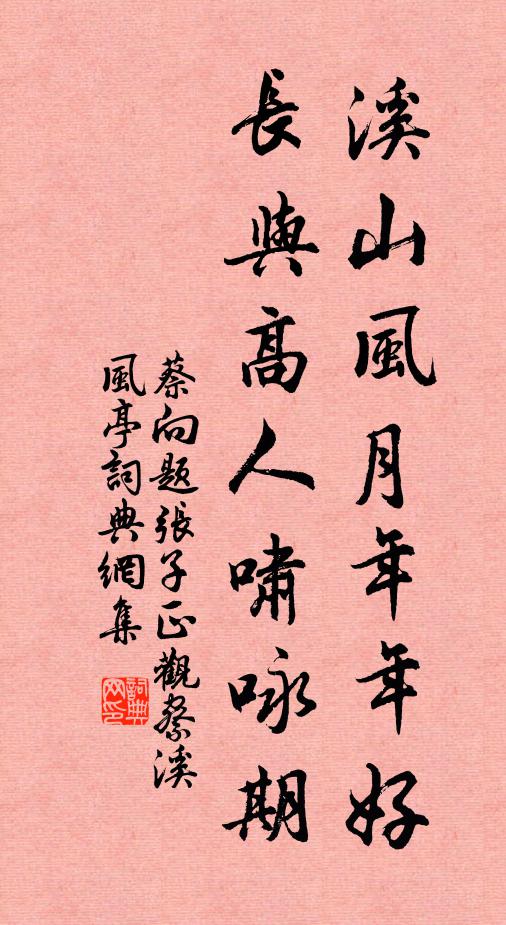 溪山風月年年好
長與高人嘯咏期
蔡向題張子正觀察溪
風亭詞典網集
詞典
网印